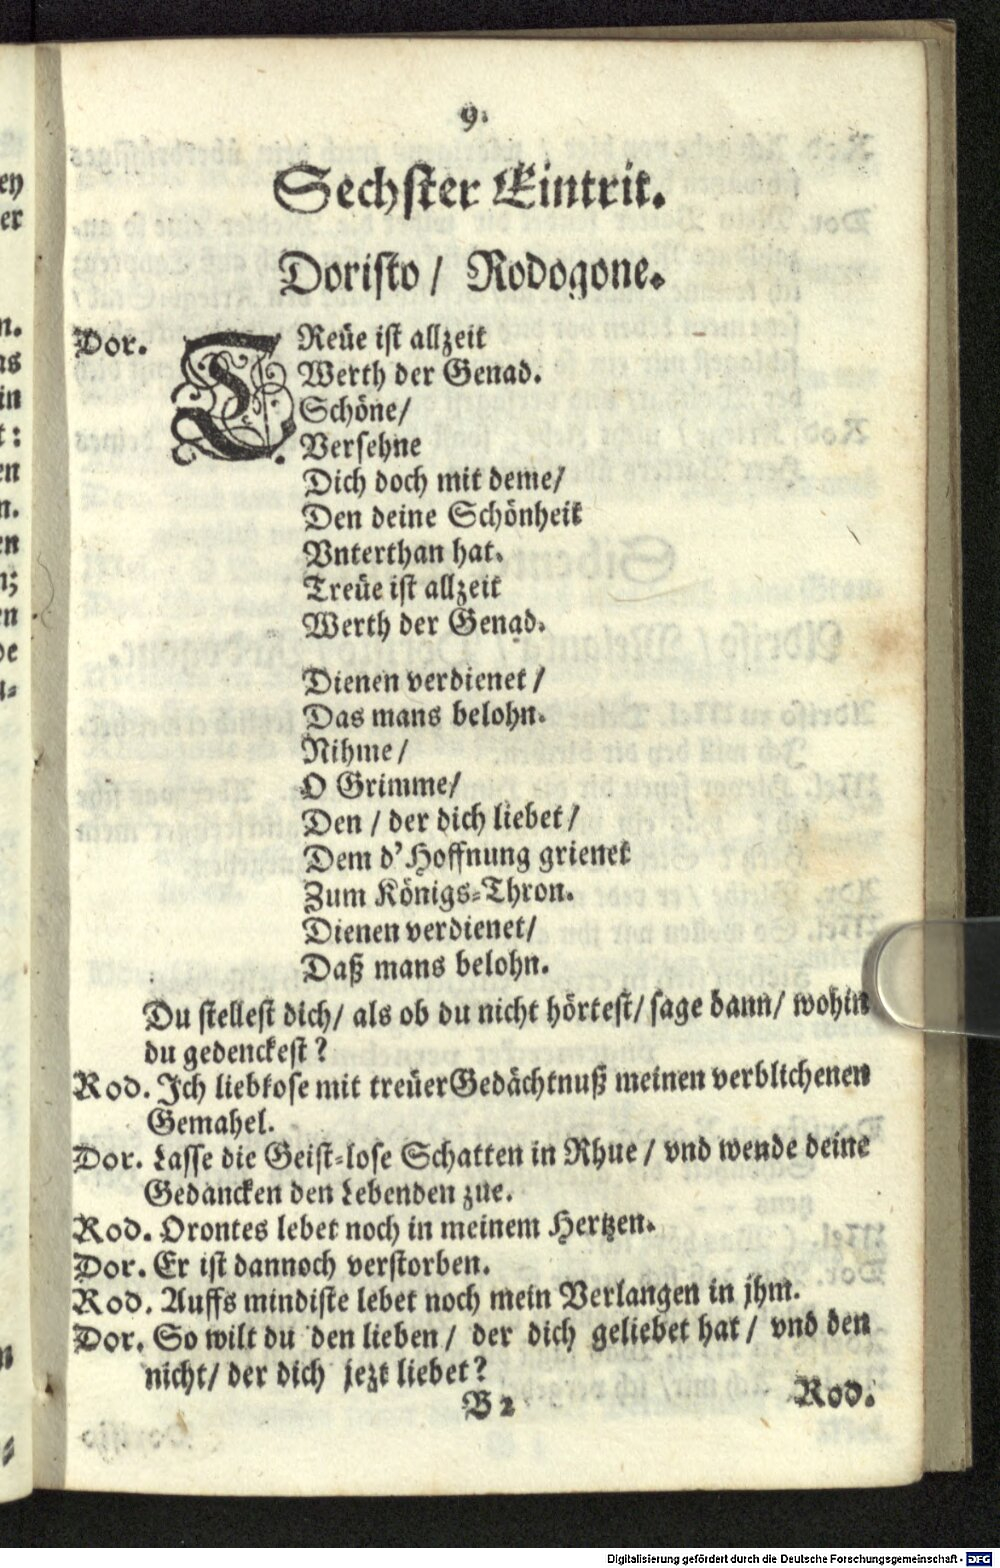 9.
Sechster Eintrit.
Doristo / Rodogone.
Dor. TReüe ist allzeit
Werth der Genad.
Schöne/
Versehne
Dich doch mit deme/
Den deine Schönheit
Vnterthan hat.
Treüe ist allzeit
Werth der Genad.
Dienen verdienet /
Das mans belohn.
Nihme /
O Grimme/
Den / der dich liebet /
Dem d'Hoffnung grienet
Zum Königs-Thron.
Dienen verdienet/
Daß mans belohn.
Du stellest dich/ als ob du nicht hörtest/ sage dann/ wohin
du gedenckest?
Rod. Ich liebkose mit treüer Gedächtnuß meinen verblichenen
Gemahel.
Dor. Lasse die Geist-lose Schatten in Rhue / vnd wende deine
Gedancken den Lebenden zue.
Rod. Orontes lebet noch in meinem Hertzen.
Dor. Er ist dannoch verstorben.
Rod. Auffs mindiste lebet noch mein Verlangen in jhm.
Dor. So wilt du den lieben / der dich geliebet hat / vnd den
nicht/ der dich jezt liebet?
B 2 Rod.
Digitalisierung gefördert durch die Deutsche Forschungsgemeinschaft - DFG